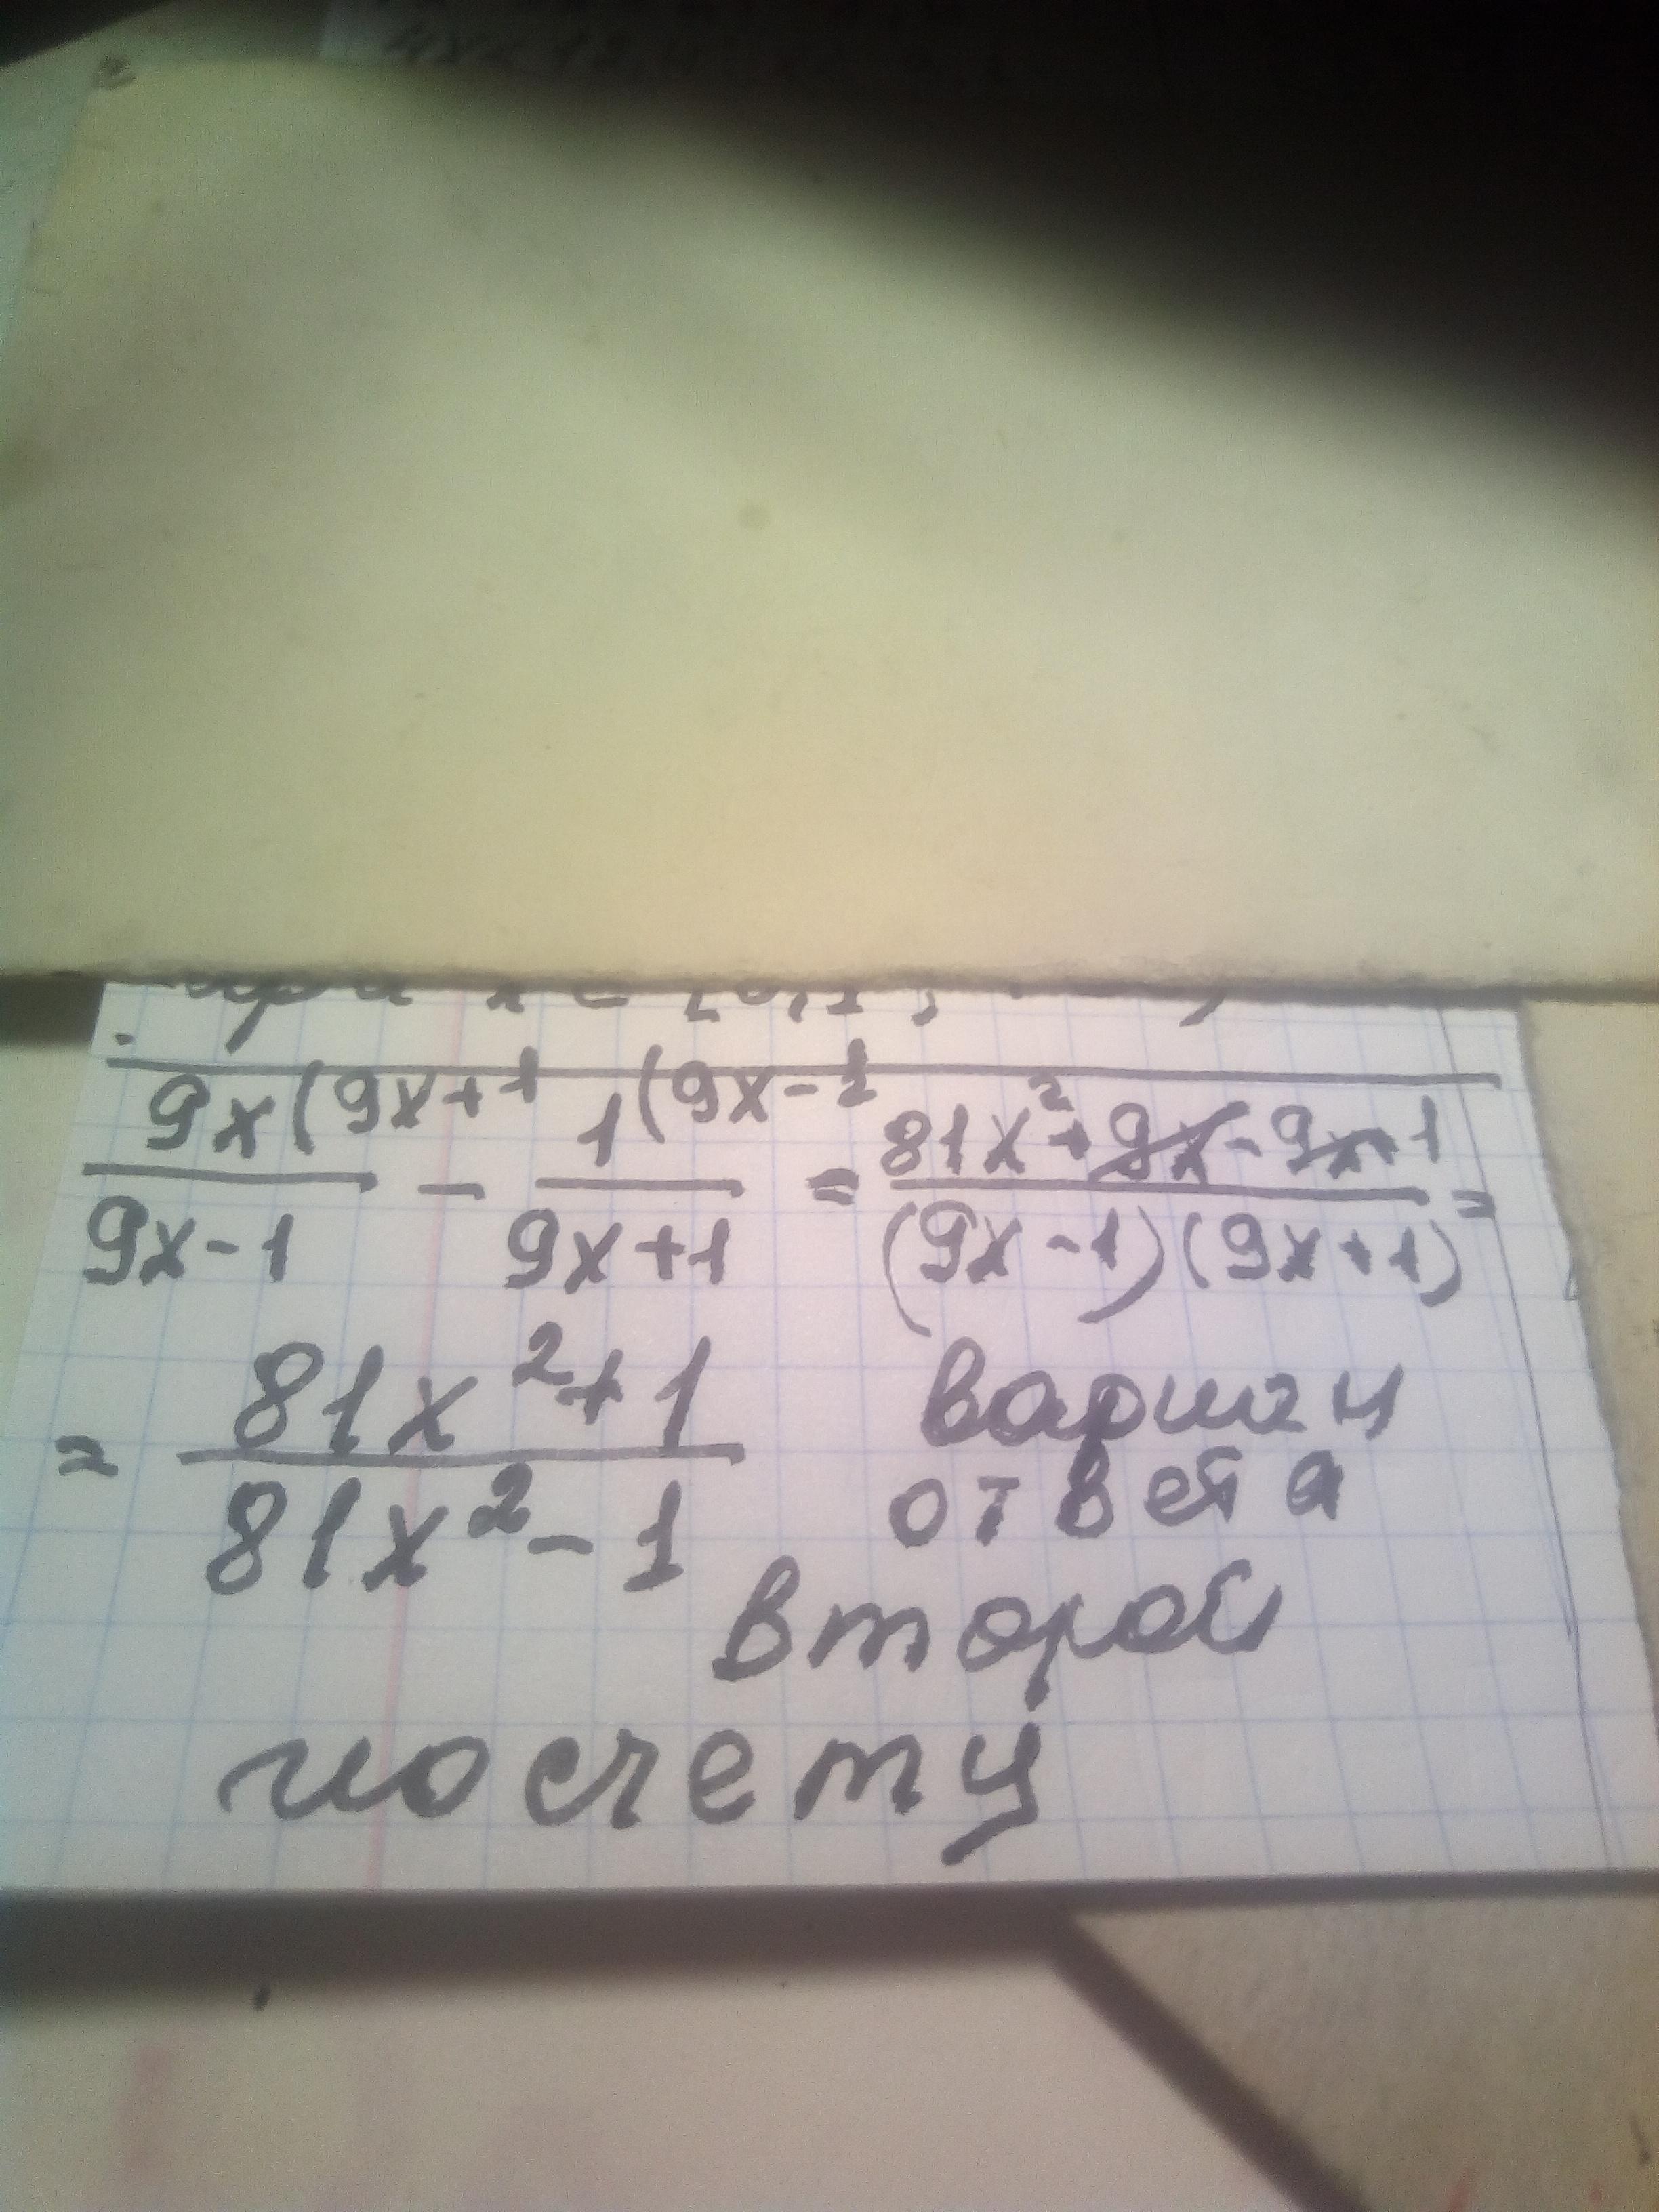 9x(9x+1 1(9x-1
9x-1 - 9x+1 = 81x²+9x-9x+1 =
(9x-1)(9x+1)
= 81x²+1
81x²-1
вариан
ответа
второй
посчему